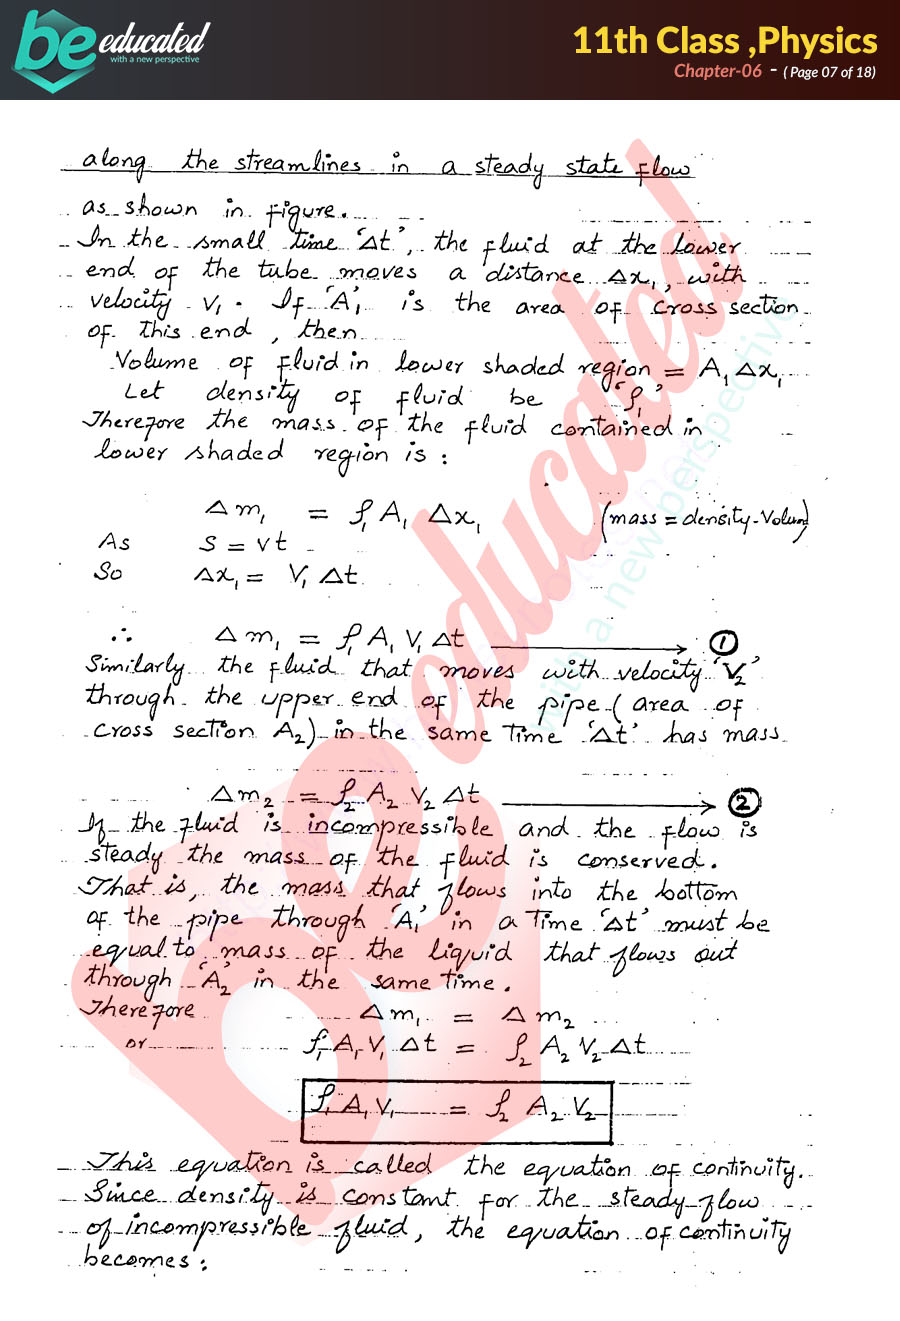 be educated
with a new perspective
11th Class ,Physics
Chapter-06 - ( Page 07 of 18)
along the streamlines in a steady state flow
as shown in figure.
In the small time 'Δt', the fluid at the lower
end of the tube moves a distance Δx₁, with
velocity V₁. If 'A₁' is the area of cross section
of this end, then
Volume of fluid in lower shaded region = A₁ Δx₁
Let density of fluid be 'ρ₁'
Therefore the mass of the fluid contained in
lower shaded region is :
Δm₁ = ρ₁ A₁ Δx₁ (mass = density-Volum)
As S = vt
So Δx₁ = V₁ Δt
∴ Δm₁ = ρ₁ A₁ V₁ Δt → ①
Similarly the fluid that moves with velocity 'V₂'
through the upper end of the pipe (area of
cross section A₂) in the same time 'Δt' has mass
Δm₂ = ρ₂ A₂ V₂ Δt → ②
If the fluid is incompressible and the flow is
steady the mass of the fluid is conserved.
That is, the mass that flows into the bottom
of the pipe through 'A₁' in a time 'Δt' must be
equal to mass of the liquid that flows out
through 'A₂' in the same time.
Therefore Δm₁ = Δm₂
or ρ₁ A₁ V₁ Δt = ρ₂ A₂ V₂ Δt
ρ₁ A₁ V₁ = ρ₂ A₂ V₂
This equation is called the equation of continuity.
Since density is constant for the steady flow
of incompressible fluid, the equation of continuity
becomes:
be educated
with a new perspective